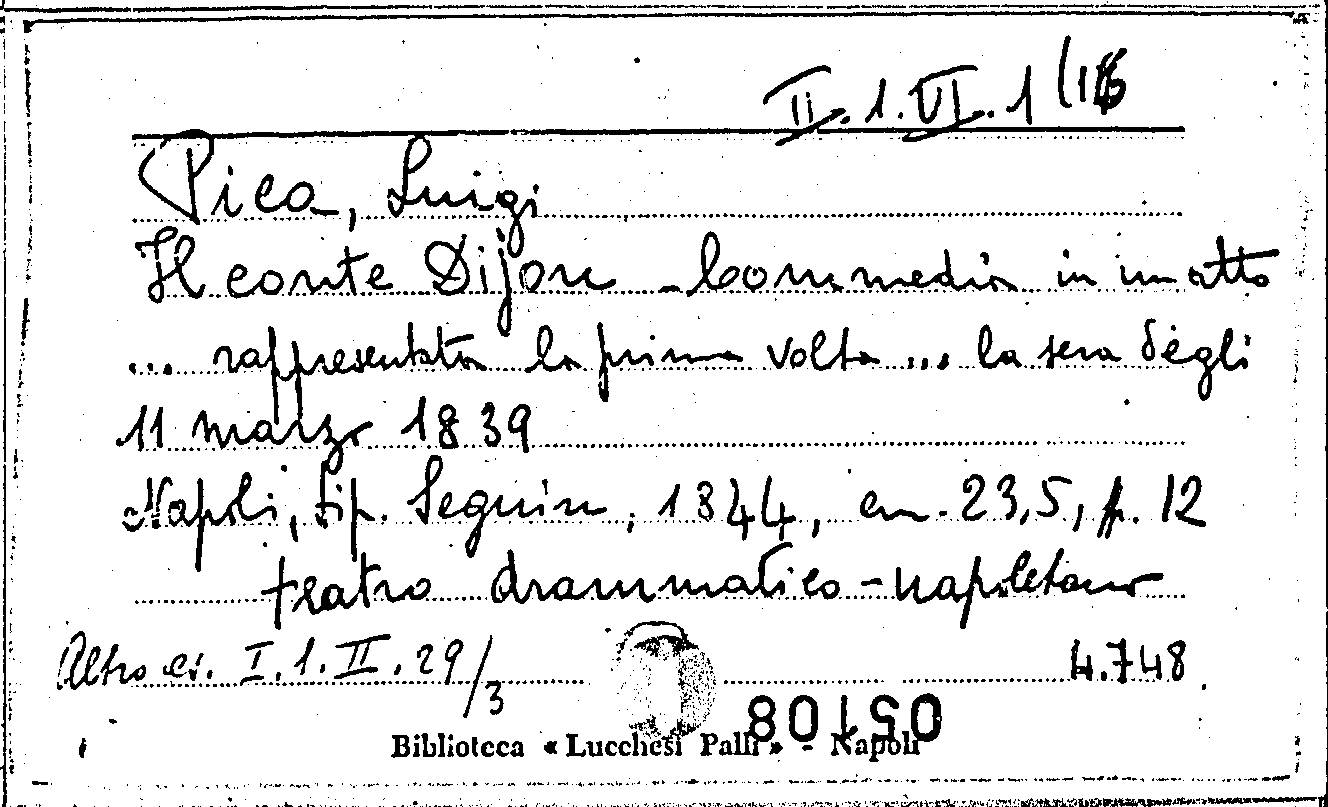 II.1.VI.1(16
Pica, Luigi
Il conte Dijon - Commedia in un atto
... rappresentata la prima volta ... la sera degli
11 marzo 1839
Napoli, tip. Seguin, 1844, cm. 23,5, p. 12
teatro drammatico-napoletano
Altro es. I.1.II.29/3
4.748
05108
Biblioteca « Lucchesi Palli » - Napoli